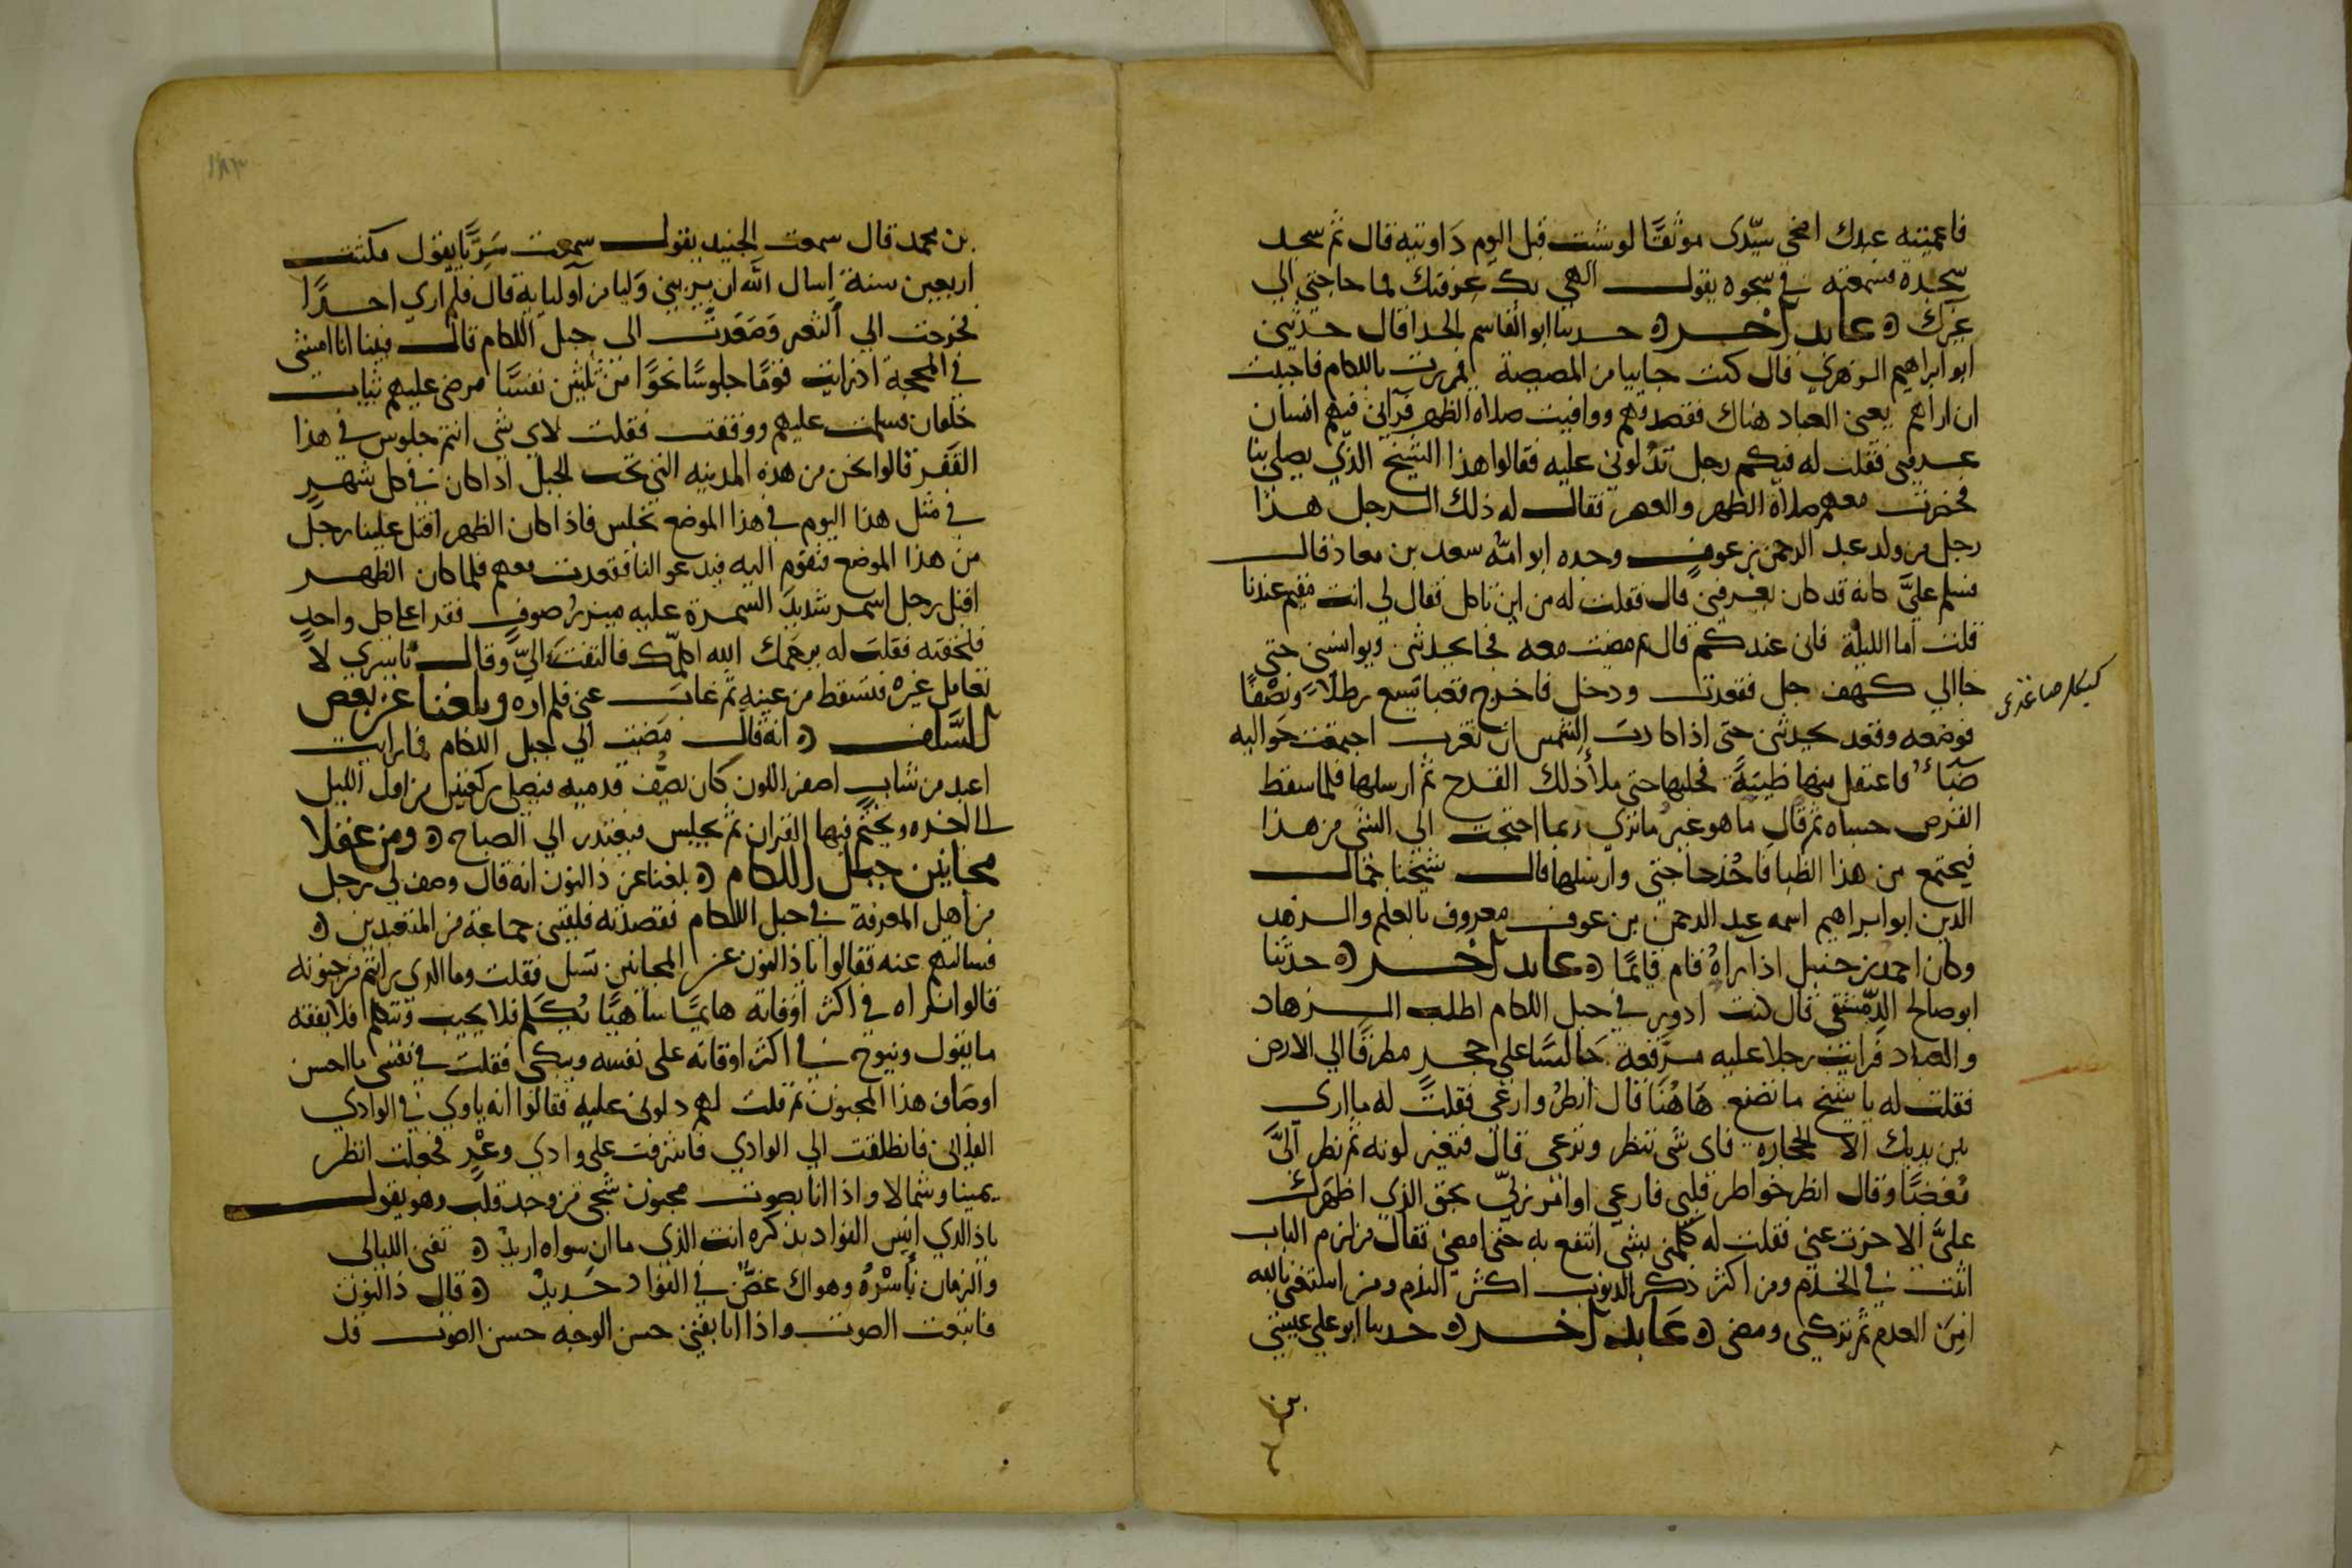 فاعميتيه عبدك اضحى سيّدى موثقًا لو شئت قبل اليوم داويته قال ثم سجد
سجده فسمعته في سجوده يقول الهي بك عرفتك فما حاجتي الي
غيرك عابد آخر حدثنا ابو القاسم الحدا قال حدثني
ابو ابراهيم الزهري قال كنت جاييا من المصيصة فمررت باللكام فاحببت
ان اراهم يعنى العباد هناك فقصدتهم ووافيت صلاه الظهر فرآني فيهم انسان
عرفنى فقلت له فيكم رجل تدلونى عليه فقالوا هذا الشيخ الذي يصلى بنا
فحضرت معهم صلاة الظهر والعصر فقال له ذلك الرجل هذا
رجل من ولد عبد الرحمن بن عوف وجده ابو امه سعد بن معاذ قال
فسلم عليَّ كانه قد كان يعرفنى قال فقلت له من اين تاكل فقال لي انت مقيم عندنا
قلت اما الليلة فانى عندكم قال ثم مضيت معه فجا يحدثنى ويوانسنى حتى
جا الي كهف جبل فقعدت ودخل فاخرج قعبا يسع رطلاً ونصفًا
فوضعه وقعد يحدثنى حتى اذا كادت الشمس ان تغرب اجتمعت حواليه
ضباء فاعتقل منها ظبيةً فحلبها حتى ملأ ذلك القدح ثم ارسلها فلما سقط
القرص حساه ثم قال ما هو غير ما ترى ربما احتجت الى الشى من هذا
فيجتمع من هذا الظبا فاخذ حاجتي وارسلها قال شيخنا جمال
الدين ابو ابراهيم اسمه عبد الرحمن بن عوف معروف بالعلم والزهد
وكان احمد بن حنبل اذا يراهُ قام قايمًا عابد آخر حدثنا
ابو صالح الدمشقي قال كنت ادور في جبل اللكام اطلب الزهاد
والعباد فرايت رجلا عليه مرقعة جالسًا على حجر مطرقًا الي الارض
فقلت له يا شيخ ما تصنع هاهُنا قال انظرُ وارعى فقلت له ما ارى
بين يديك الا الحجاره فاى شى تنظر وترعى قال فتغير لونه ثم نظر الىَّ
مُغضبًا وقال انظر خواطر قلبي وارعى اوامر ربىّ بحق الذي اظهرك
علىَّ الا جزت عنى فقلت له كلمنى بشى انتفع به حتى امضى فقال من لزم الباب
اثبت في الخدم ومن اكثر ذكر الذنوب اكثر الندم ومن استغنى بالله
امِن العدم ثم تركنى ومضى عَابد آخر حدثنا ابو على عيسى
بن
بن محمد قال سمعت الجنيد يقول سمعت سَريًّا يقول مكثت
اربعين سنة اسال الله ان يريني وليا من اوليايه قال فلم اري احدًا
فخرجت الي الثغر وصَعَدت الى جبل اللكام قال فبينا انا امشى
في المحجة اذ رايت قومًا جلوسًا نحوًا من ثلثين نفسًا مرضى عليهم ثياب
خلقان فسلمت عليهم ووقفت فقلت لاى شي انتم جلوس في هذا
القفر قالوا نحن من هذه المدينه التي تحت الجبل اذا كان في كل شهر
في مثل هذا اليوم في هذا الموضع نجلس فاذا كان الظهر اقبل علينا رجل
من هذا الموضع فنقوم اليه فيدعوا لنا فقعدت معهم فلما كان الظهر
اقبل رجل اسمر شديد السمرة عليه ميزر صوف فقد اعا كل واحد
فلحقته فقلت له يرحمك الله اكلمك فالتفت الىّ وقال يا سري لا
تعامل غيره فتسقط من عينه ثم غاب عنى فلم اره وبلغنا عن بعض
السلف انه قال مضيت الي جبل اللكام فما رايت
اعبد من شاب اصفر اللون كان يصُف قدميه فيصلى ركعتين من اول الليل
الى اخره ويختم فيها القران ثم يجلس فيعتذر الي الصباح ومن عقلا
مجانين جبل اللكام بلغنا عن ذا النون انه قال وصف لى رجل
من اهل المعرفة في جبل اللكام فقصدته فلقينى جماعة من المتعبدين
فسالتهم عنه فقالوا يا ذا النون عن المجانين تسل فقلت وما الذى رايتم من جنونه
قالوا نراه في اكثر اوقاته هايمًا ساهيًا يُكلم فلا يجيب وتتكلم فلا يفقه
ما يقول وينوح في اكثر اوقاته على نفسه ويبكى فقلت في نفسى ما احسن
اوصاف هذا المجنون ثم قلت لهم دلونى عليه فقالوا انه ياوى في الوادي
الفلانى فانطلقت الي الوادي فاشرفت على وادي وعْرٍ فجعلت انظر
يمينا وشمالا واذا انا بصوت مجنون شجى من وجد قلب وهو يقول
ياذا الذي انِس الفواد بذكره انت الذي ما ان سواه اريد تفنى الليالى
والزمان باسْرهُ وهواك غضٌ في الفواد جَديد قال ذا النون
فاتبعت الصوت واذا انا بفتى حسن الوجه حسن الصوت قد